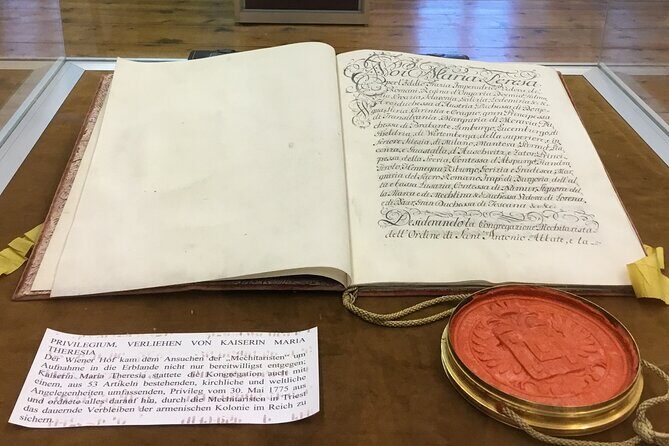 Noi Maria Teresa
Imperadrice Vedova de'
Romani, Regina d'Ongeria, Boemia, Dalma-
zia, Croazia, Schiavonia, Galizia, Lodomeria &c. &.
Arciduchessa d'Austria, Duchessa di Borgo-
gna, Stiria, Carintia e Cragno, gran Principessa
di Transilvania, Margravia di Moravia, Du-
chessa di Brabante, Limburgo, Lucemburgo, di
Gheldria, di Wirtemberga, della superiore, e in-
feriore Slesia, di Milano, Mantova, Parma, Pia-
cenza, e Guastalla, d'Auschwitz, e Zator, Princi-
pessa della Svevia, Contessa d'Absburgo, Fiandra,
Tirolo, Hannegau, Kiburgo, Gorizia, e Gradisca, Mar-
gravia del Sacro Romano Imp: di Burgovia, dell'al-
ta e bassa Lusazia, Contessa di Namur, Signora del-
la Marca e di Mechlina &c Duchessa Vedova di Lorena,
e di Bar, Gran Duchessa di Toscana &c. &c.
Desiderando la Congregazione Mechitarista
dell'Ordine di Sant'Antonio Abbate, e la-
PRIVILEGIUM, VERLIEHEN VON KAISERIN MARIA
THERESIA
Der Wiener Hof kam dem Ansuchen der "Mechitaristen" um
Aufnahme in die Erblande nicht nur bereitwilligst entgegen;
Kaiserin Maria Theresia stattete die Kongregation auch mit
einem, aus 53 Artikeln bestehenden, kirchliche und weltliche
Angelegenheiten umfassenden, Privileg vom 30. Mai 1775 aus
und ordnete alles darauf hin, durch die Mechitaristen in Triest
das dauernde Verbleiben der armenischen Kolonie im Reich zu
sichern.